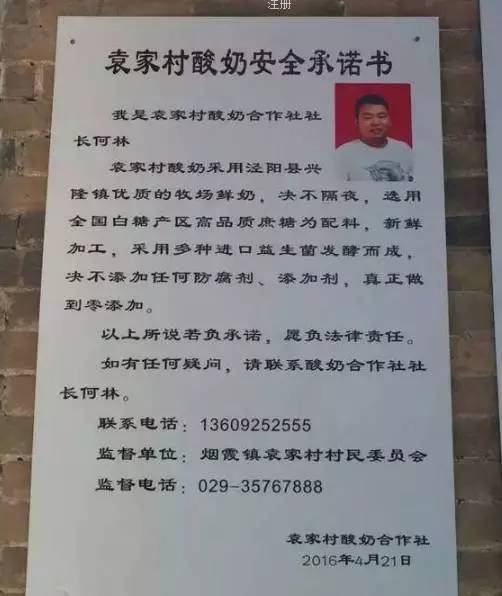 注册
袁家村酸奶安全承诺书
我是袁家村酸奶合作社社
长何林
袁家村酸奶采用泾阳县兴
隆镇优质的牧场鲜奶，决不隔夜，选用
全国白糖产区高品质庶糖为配料，新鲜
加工，采用多种进口益生菌发酵而成，
决不添加任何防腐剂、添加剂，真正做
到零添加。
以上所说若负承诺，愿负法律责任。
如有任何疑问，请联系酸奶合作社社
长何林。
联系电话：13609252555
监督单位：烟霞镇袁家村村民委员会
监督电话：029-35767888
袁家村酸奶合作社
2016年4月21日